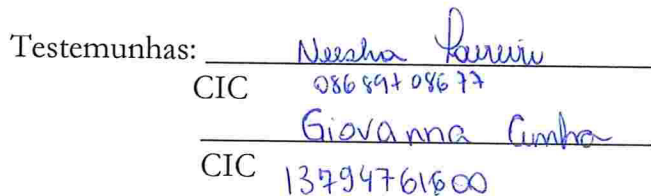 Testemunhas: Neesha Loureiro
CIC 08689708677
Giovanna Cunha
CIC 13794761600